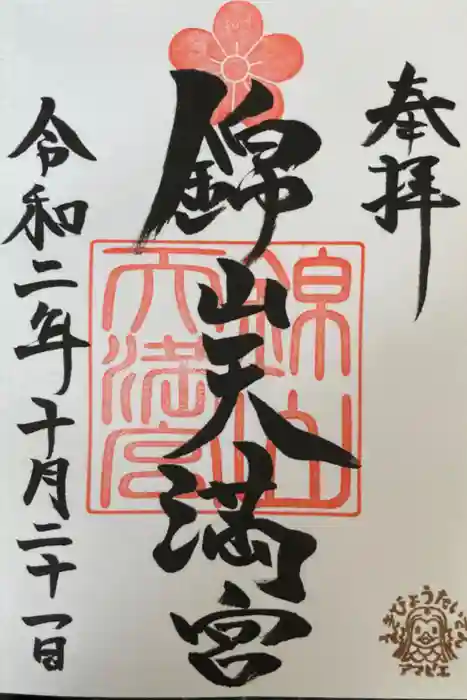 奉拝
錦山天満宮
令和二年十月二十一日
錦山
天満宮
えきびょうたいさん
アマビエ